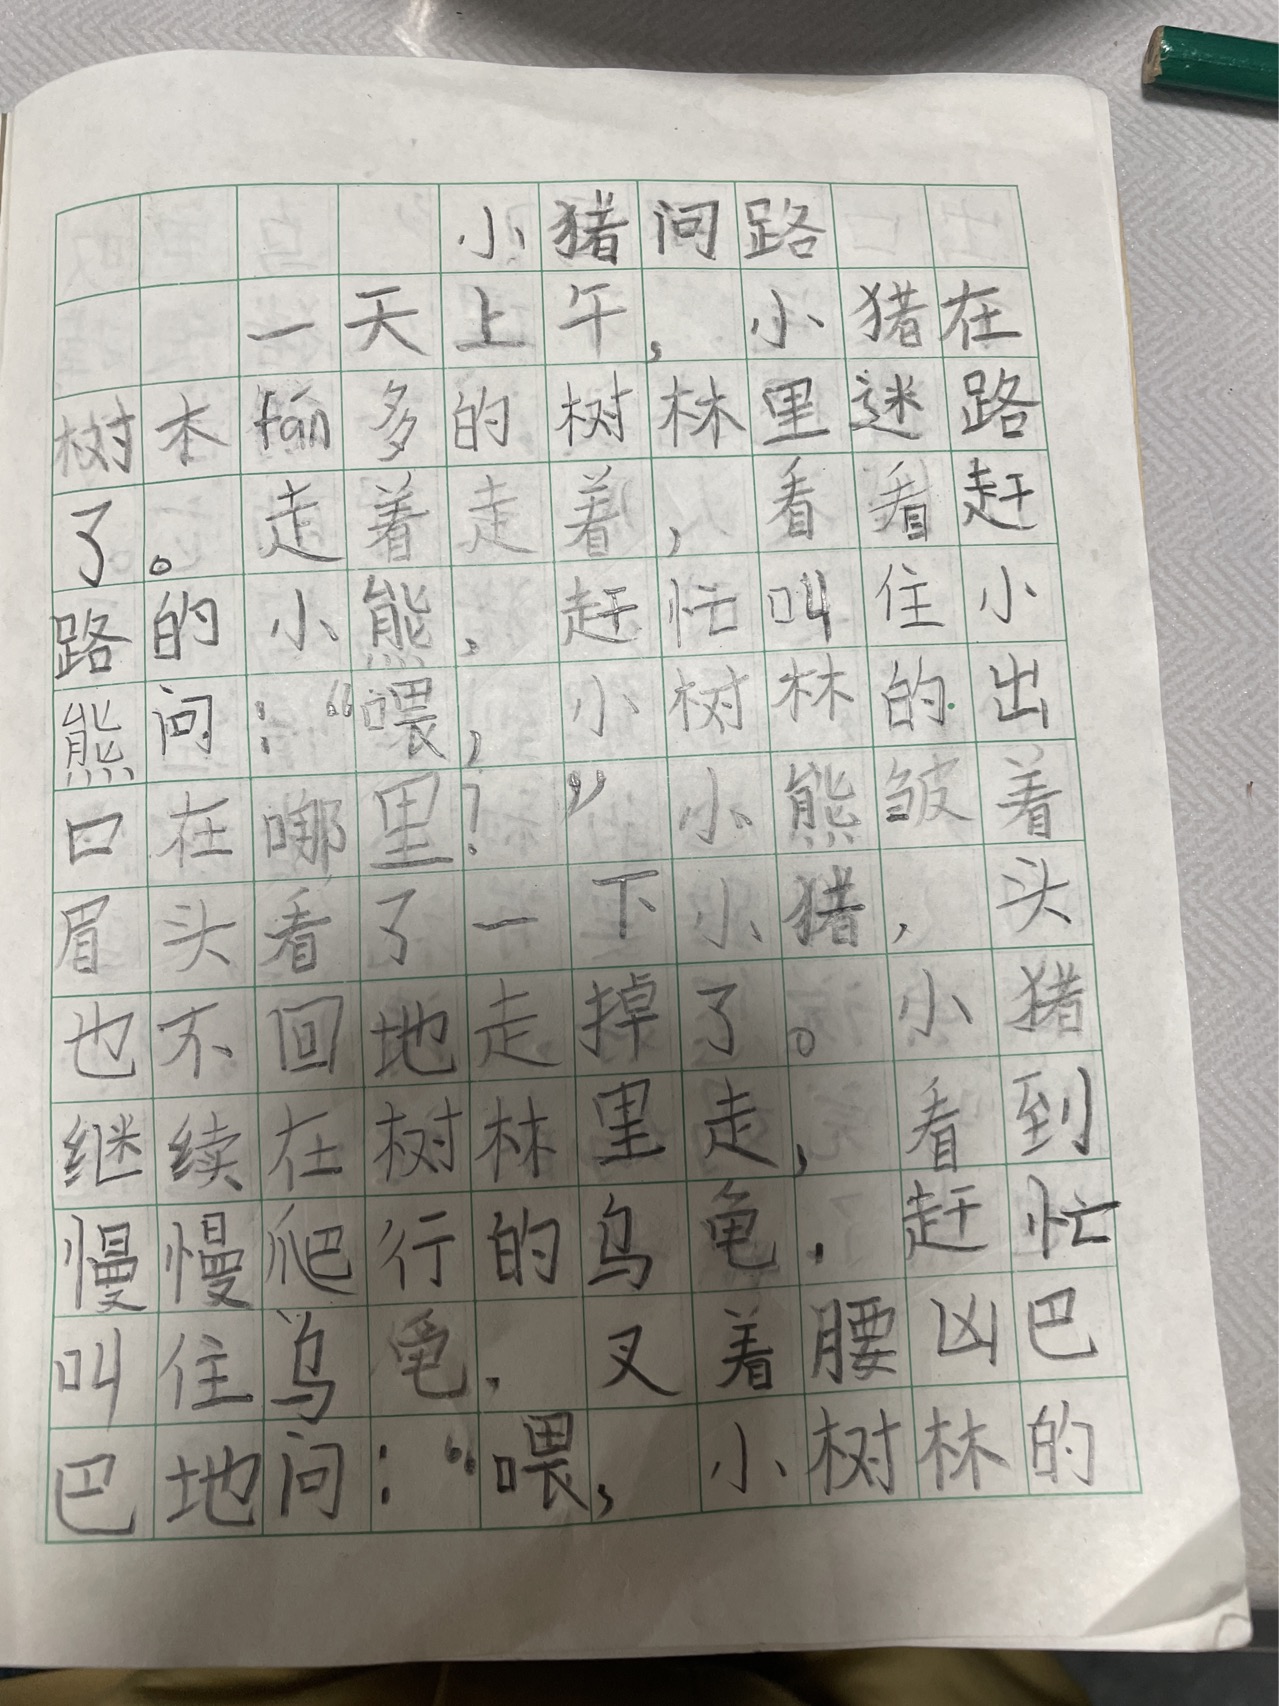 小猪问路
一天上午，小猪在
树木fán多的树林里迷路
了。走着走着，看看赶
路的小熊，赶忙叫住小
熊问：“喂，小树林的出
口在哪里？”小熊皱着
眉头看了一下小猪，头
也不回地走掉了。小猪
继续在树林里走，看到
慢慢爬行的乌龟，赶忙
叫住乌龟，叉着腰凶巴
巴地问：“喂，小树林的